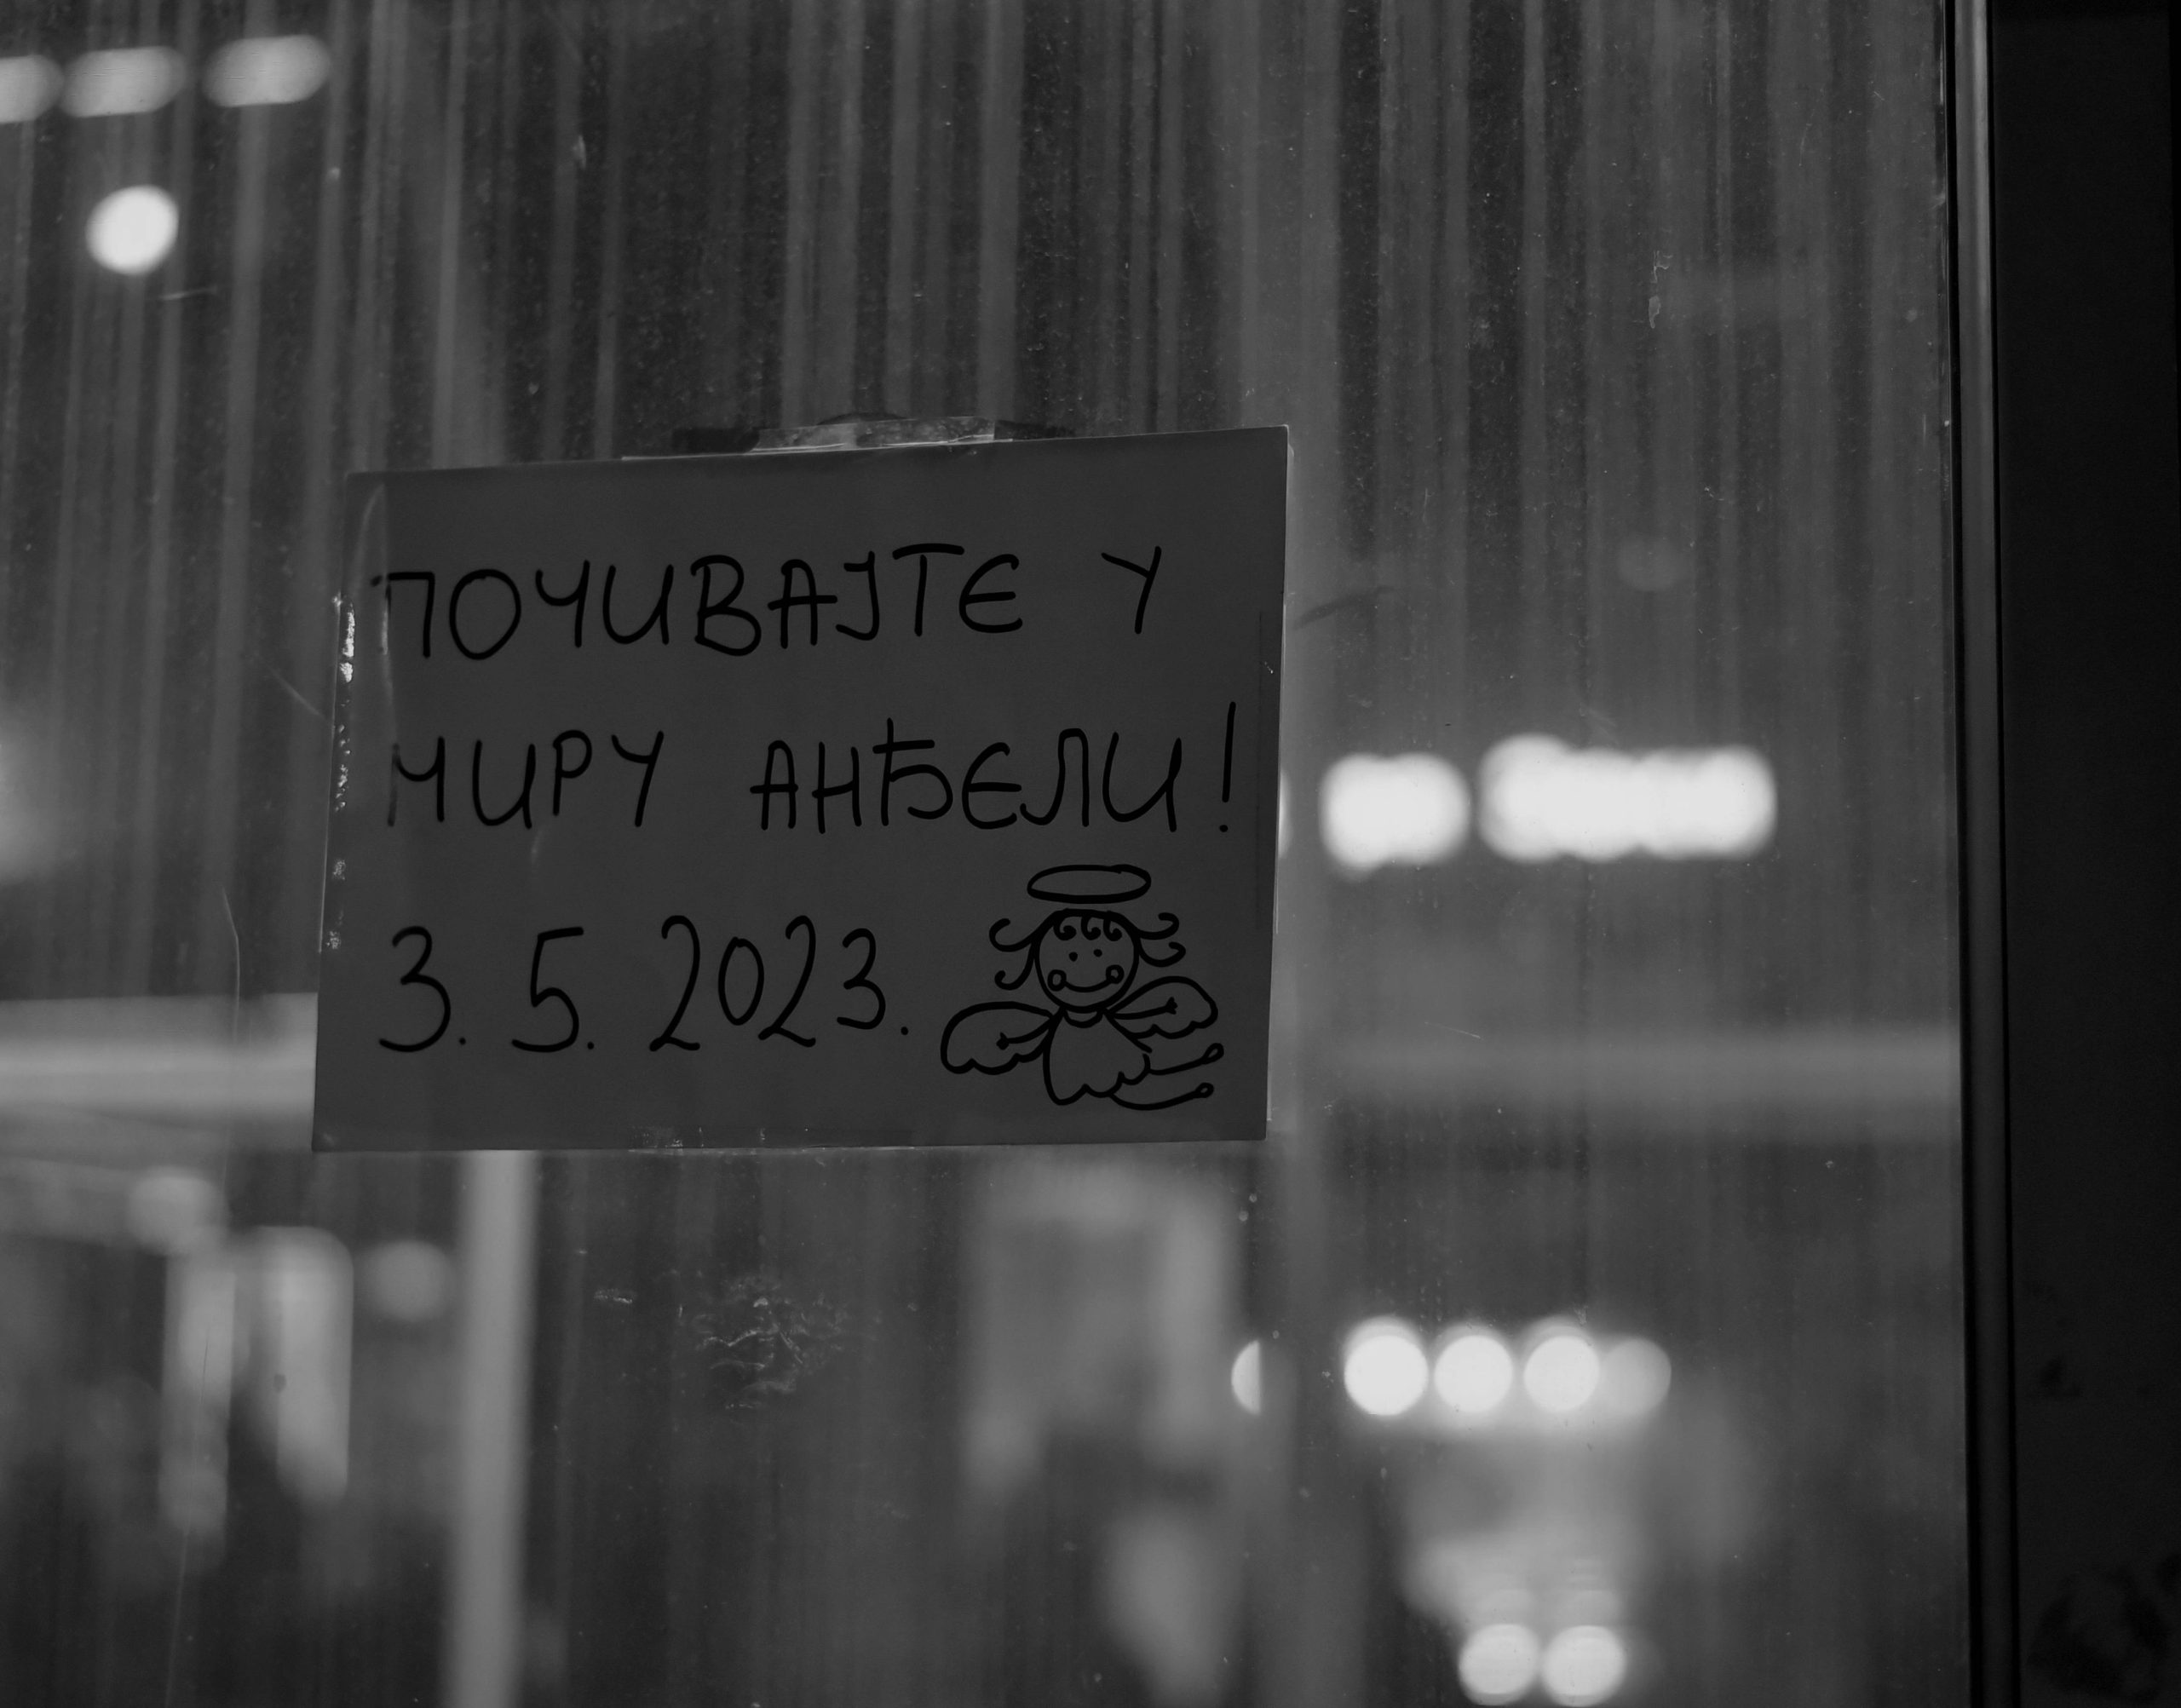 ПОЧИВАЈТЕ У
МИРУ АНЂЕЛИ!
3. 5. 2023.